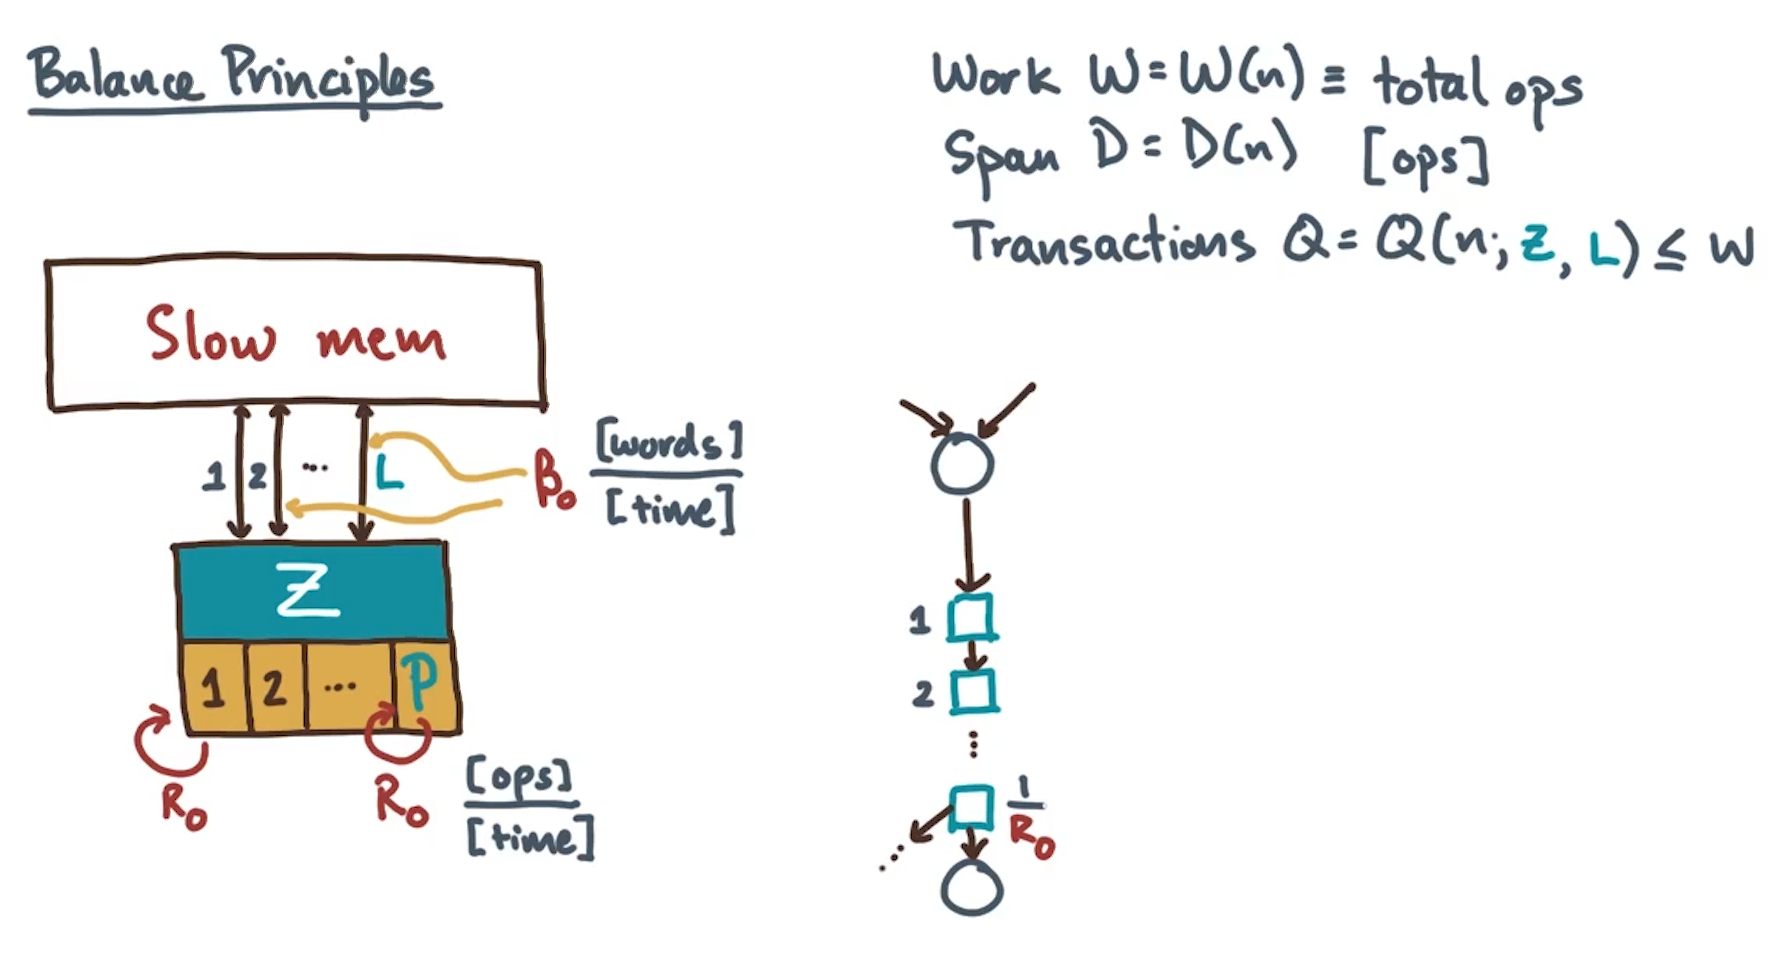 Balance Principles
Work W = W(n) ≡ total ops
Span D = D(n) [ops]
Transactions Q = Q(n; Z, L) ≤ W
Slow mem
1 2 ... L
β₀ [words]/[time]
Z
1 2 ... P
R₀ R₀ [ops]/[time]
1
2
1/R₀